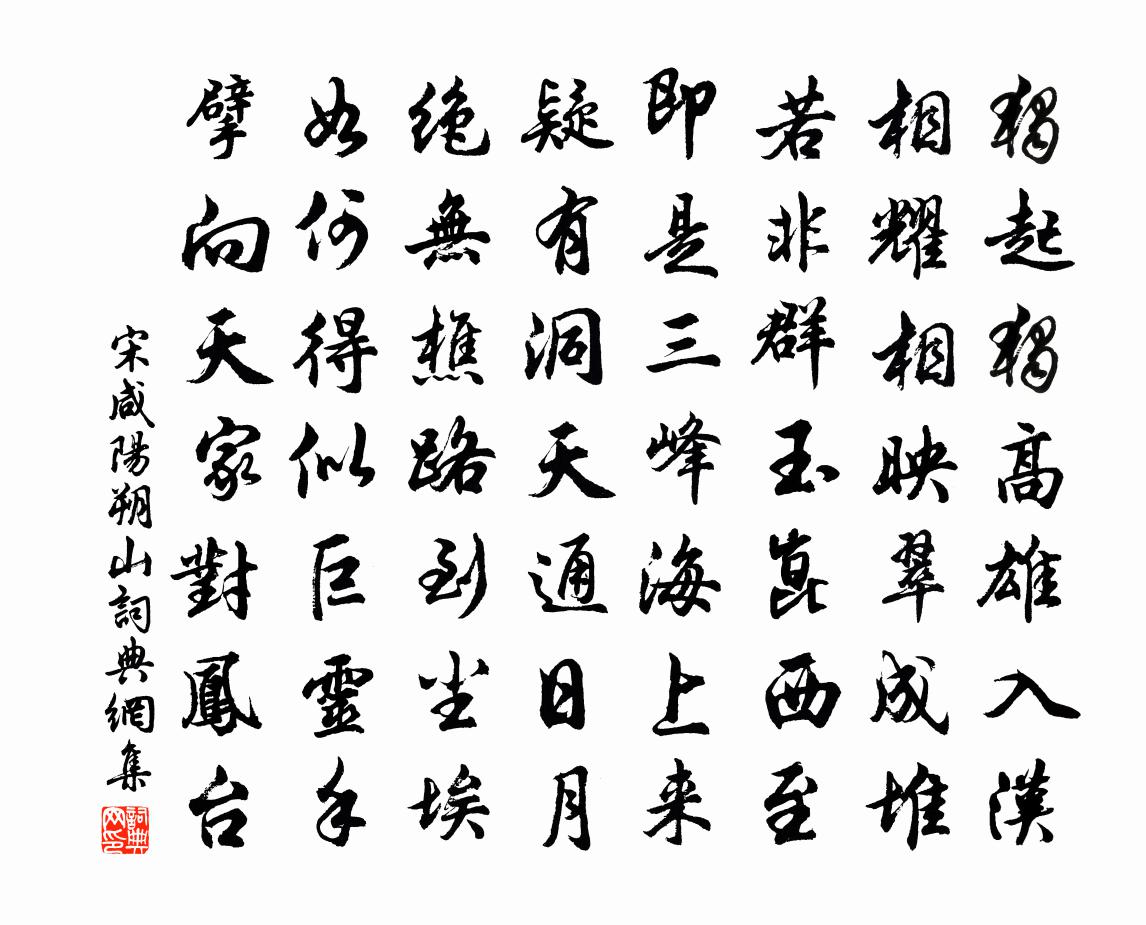 獨起獨高雄入漢
相耀相映翠成堆
若非群玉崑西至
即是三峰海上来
疑有洞天通日月
絶無樵路到尘埃
如何得似巨靈手
擘向天家對鳳台
宋咸陽朔山詞典網集
詞典网印